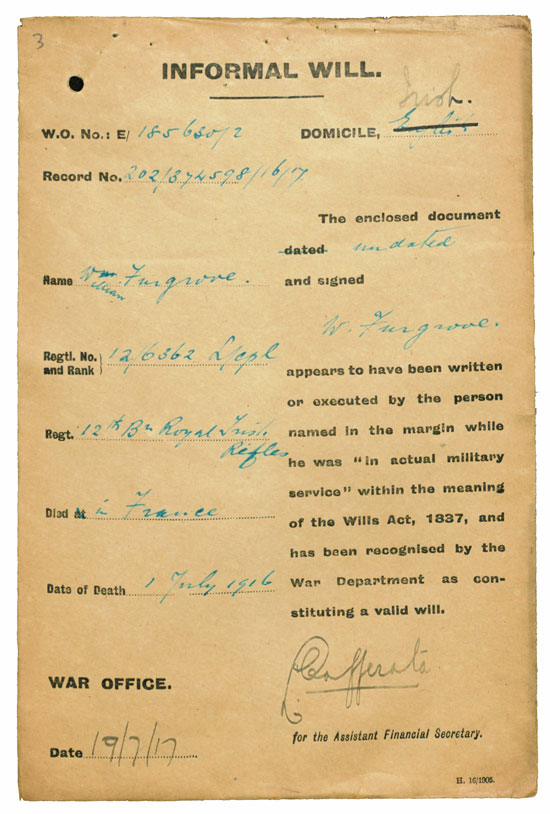 3
INFORMAL WILL.
Irish.
W.O. No.: E/ 185630/2
DOMICILE, English
Record No. 202/374598/16/17
The enclosed document
dated undated
and signed
Name Wm William Furgrove.
W. Furgrove.
Regtl. No. and Rank } 12/6362 L/cpl
appears to have been written
or executed by the person
Regt. 12th Bn Royal Irish.
Rifles
named in the margin while
he was "in actual military
service" within the meaning
Died at in France
of the Wills Act, 1837, and
has been recognised by the
Date of Death 1 July 1916
War Department as con-
stituting a valid will.
Cafferata
WAR OFFICE.
for the Assistant Financial Secretary.
Date 19/7/17
H. 16/1905.